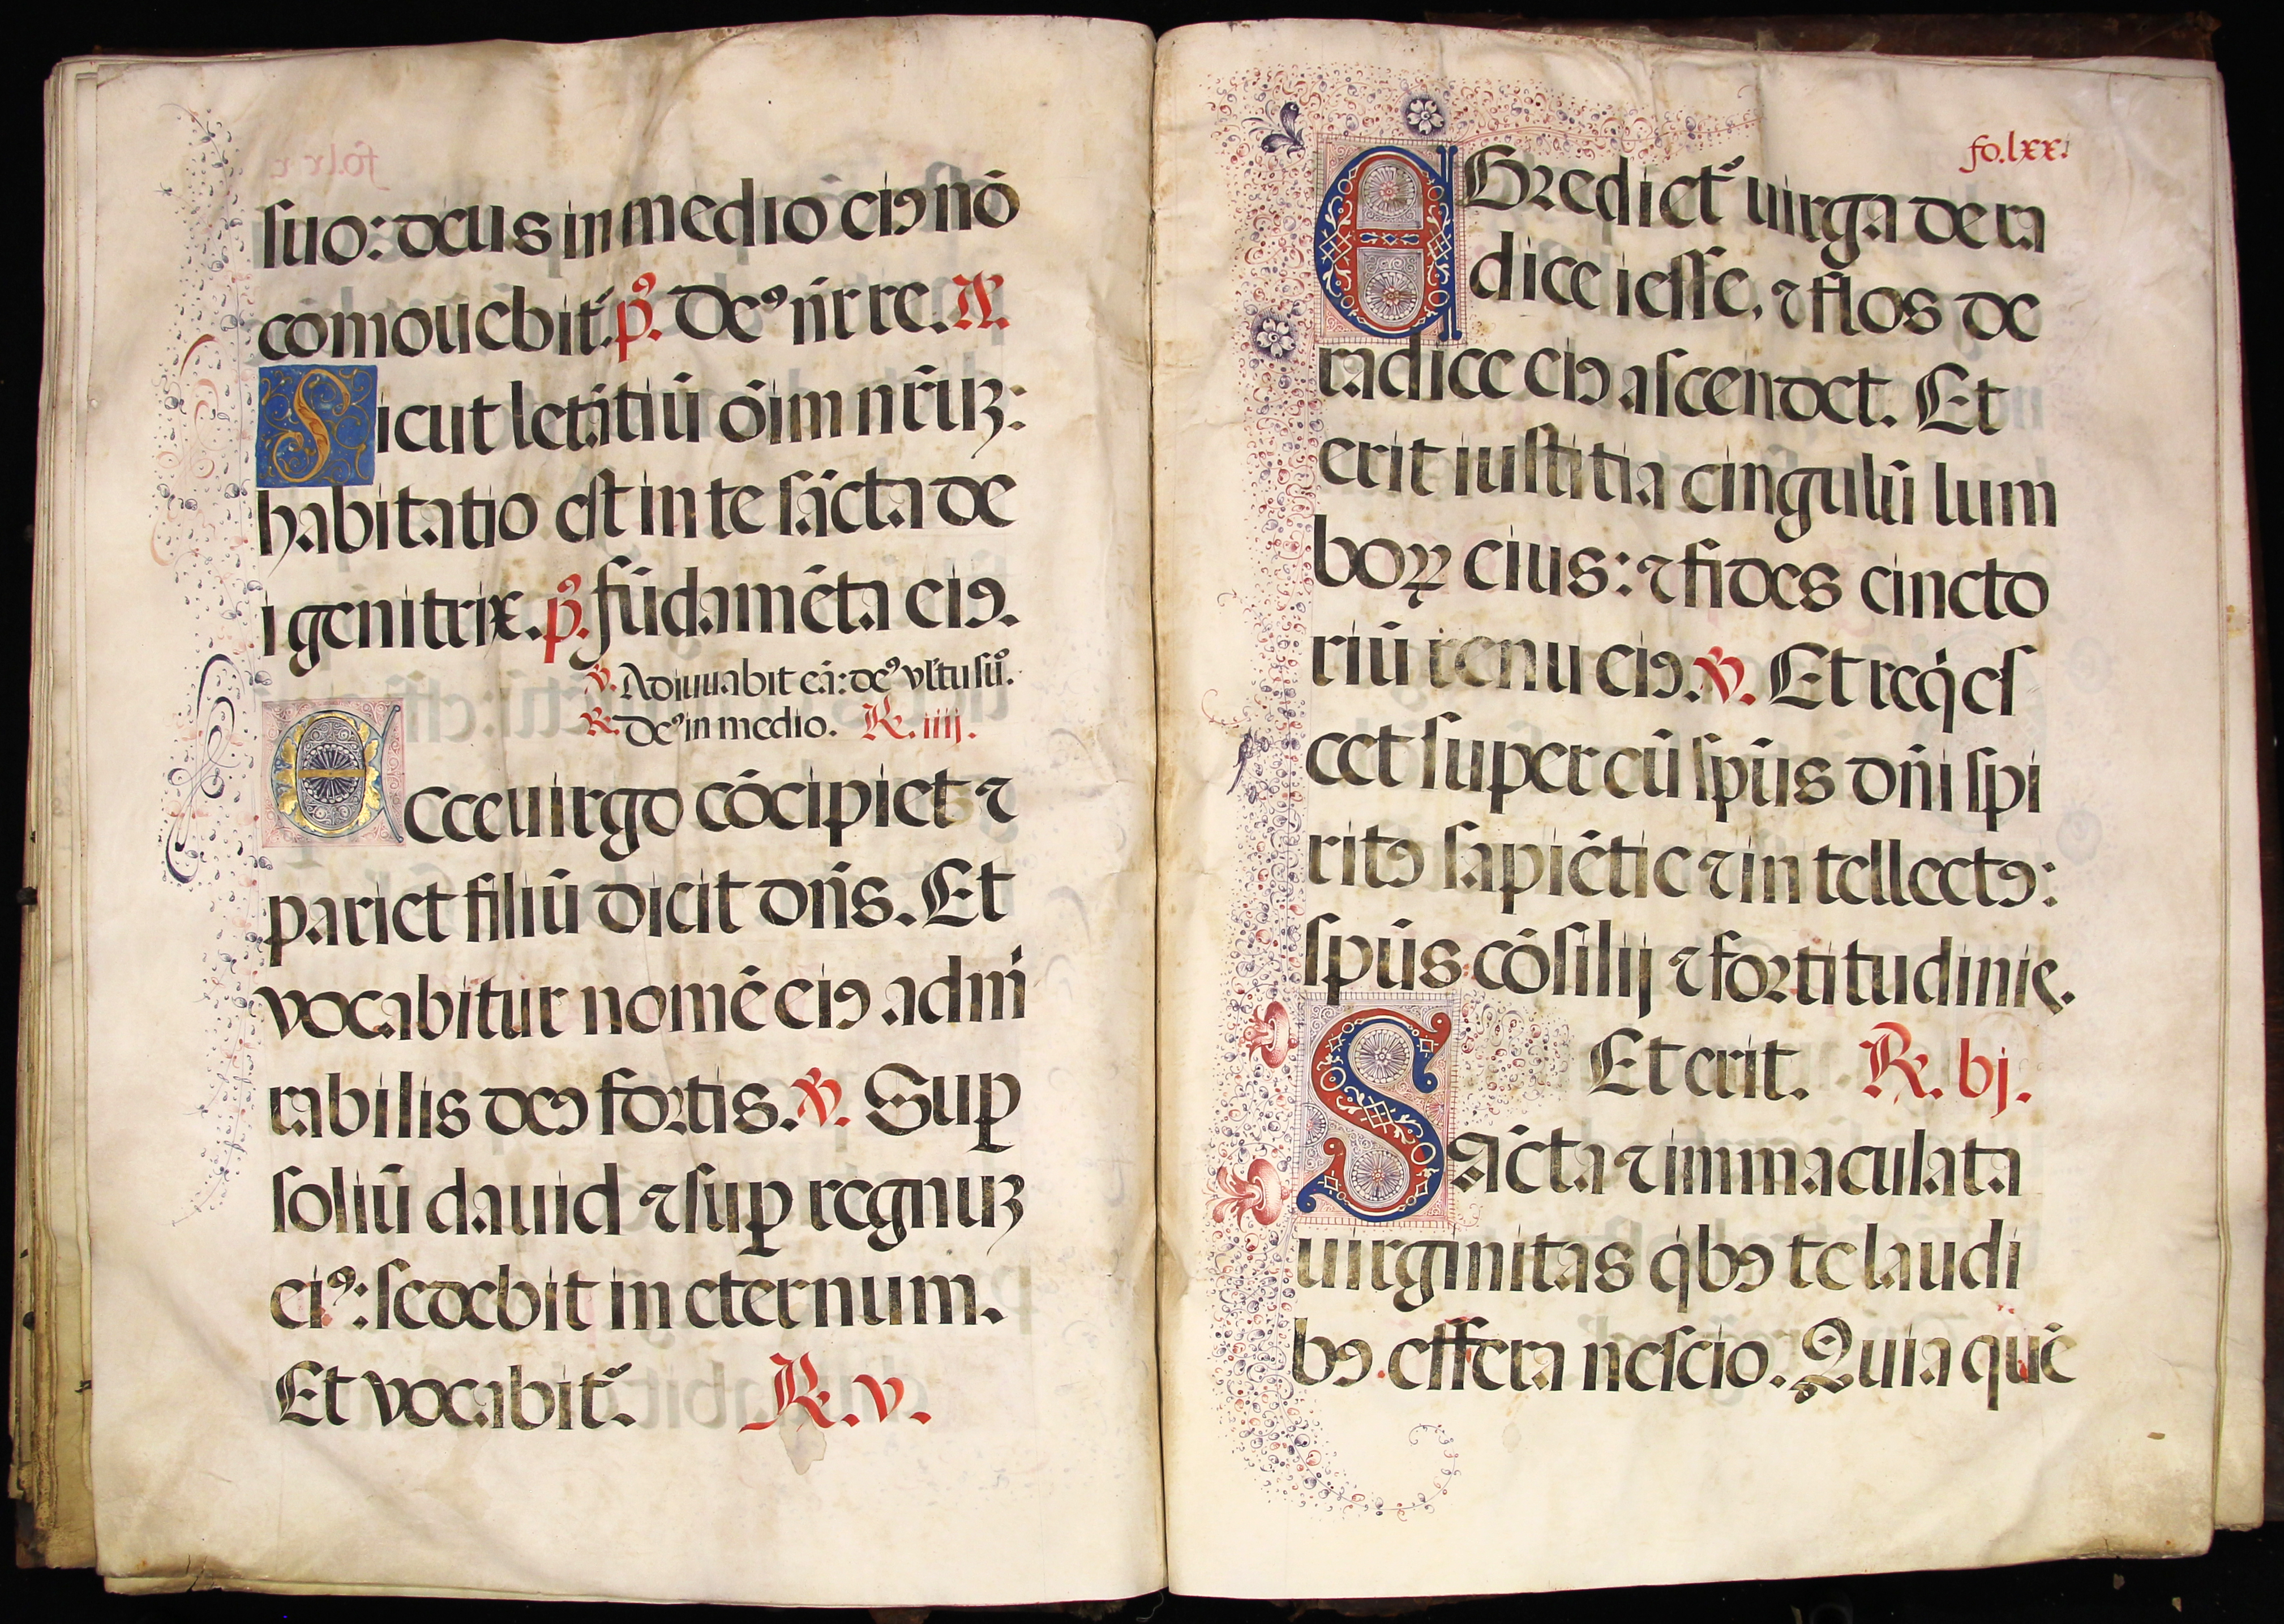 suo: deus in medio eiꝯ nō
cōmouebit᷑. p̄s. Deꝰ nr̄ re. A.
Sicut letātiū ōim nr̄uꝫ:
habitatio est in te sācta de
i genitrix. p̄s. fūdamēta eiꝯ.
℣. Adiuuabit eā: deꝰ vltu suo.
R. Deꝰ in medio. ℟. iiij.
Ecce uirgo cōcipiet ⁊
pariet filiū dicit dn̄s. Et
vocabitur nomē eiꝯ admi
rabilis deꝯ fortis. ℣. Suꝑ
soliū dauid ⁊ suꝑ regnuꝫ
eiꝰ: sedebit in eternum.
Et vocabit᷑. ℟. v.
fo. lxx.
EGrediet᷑ uirga de ra
dice iesse, ⁊ flos de
radice eiꝯ ascendet. Et
erit iustitia cingulū lum
boꝝ eius: ⁊ fides cincto
riū renu eiꝯ. ℣. Et reqͥes
cet super eū spūs dn̄i spi
ritꝯ sapiētie ⁊ in tellectꝯ:
spūs cōsilij ⁊ fortitudinis.
Et erit. ℟. bj.
Sācta ⁊ immaculata
uirginitas qͥbꝯ te laudi
bꝯ. effera nescio. Quia quē